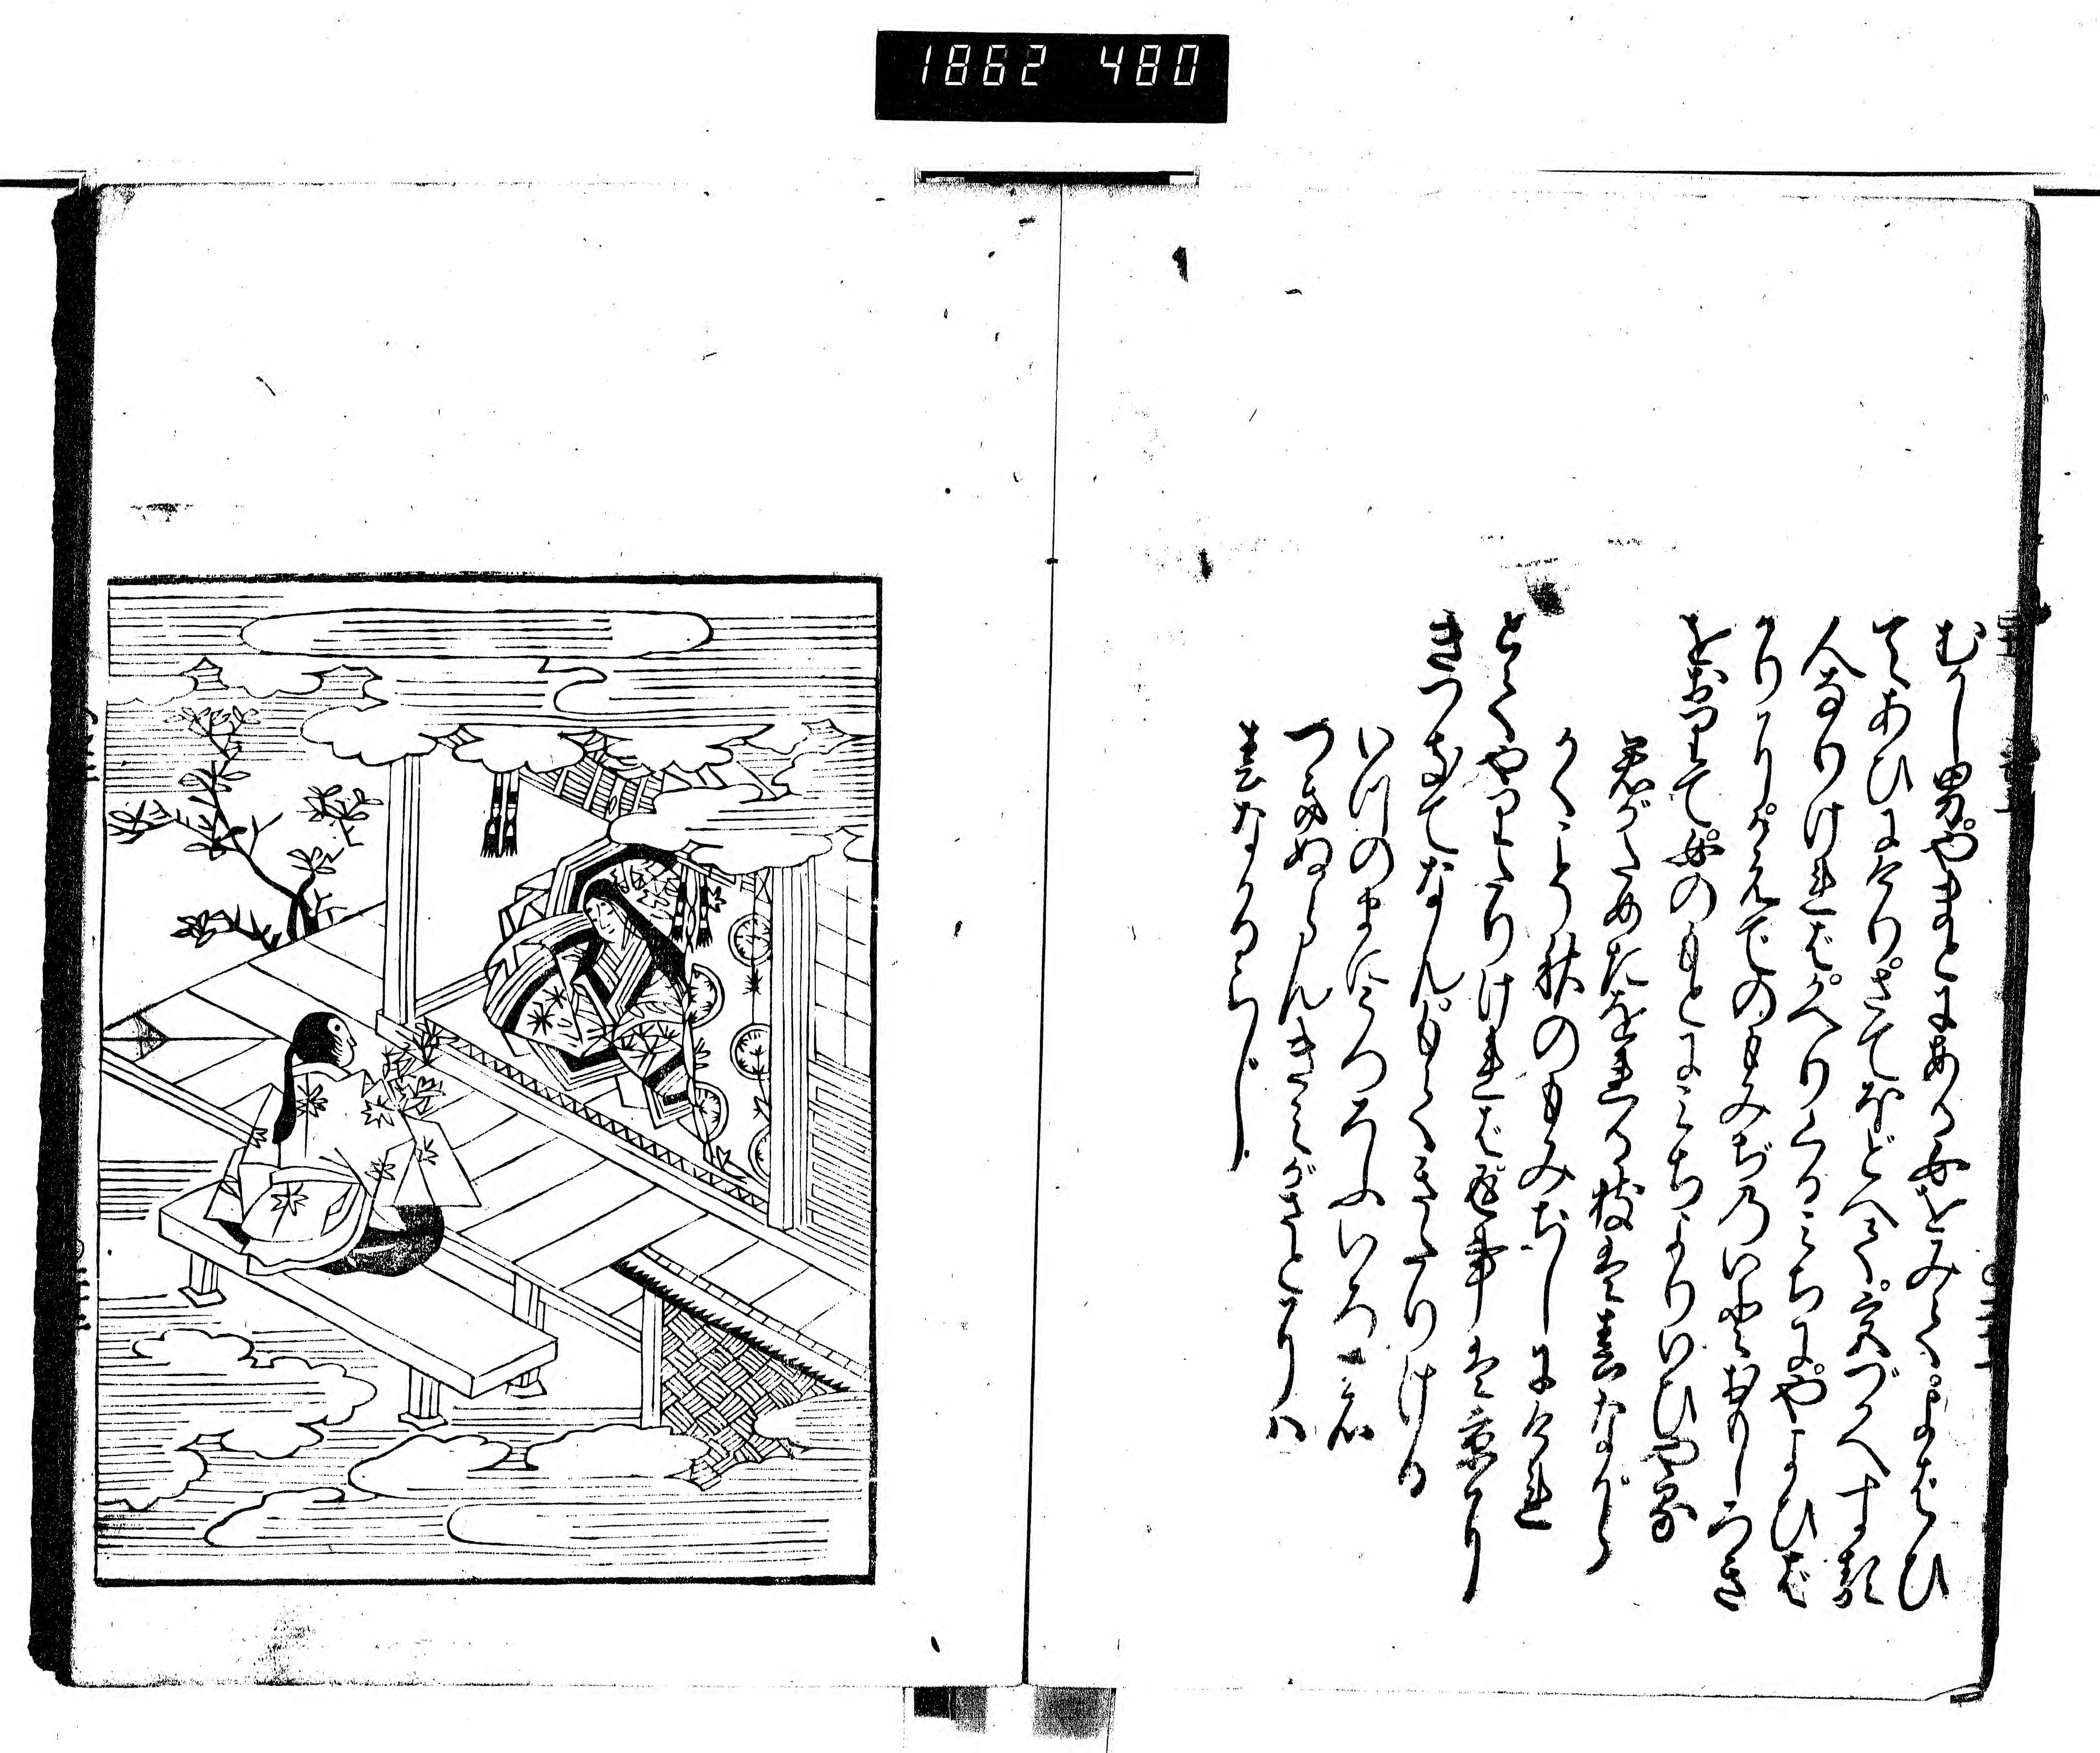 1862 480
むかし男。やまとにある女をみて。よばひ
てあひにけり。さてほどへて。宮づかへする
人なりければ。かへりくるみちに。やよひば
かりに。かえでのもみぢの。いとおもしろき
をおりて。女のもとにみちよりいひやる
君がためたをれる枝は春ながら
かくこそ秋のもみぢしにけれ
とてやりたりければ。返事は京に
きつきてなん。もてきたりける
いつのまにうつろふいろの
つきぬらんきみがさとには
春なかるらし